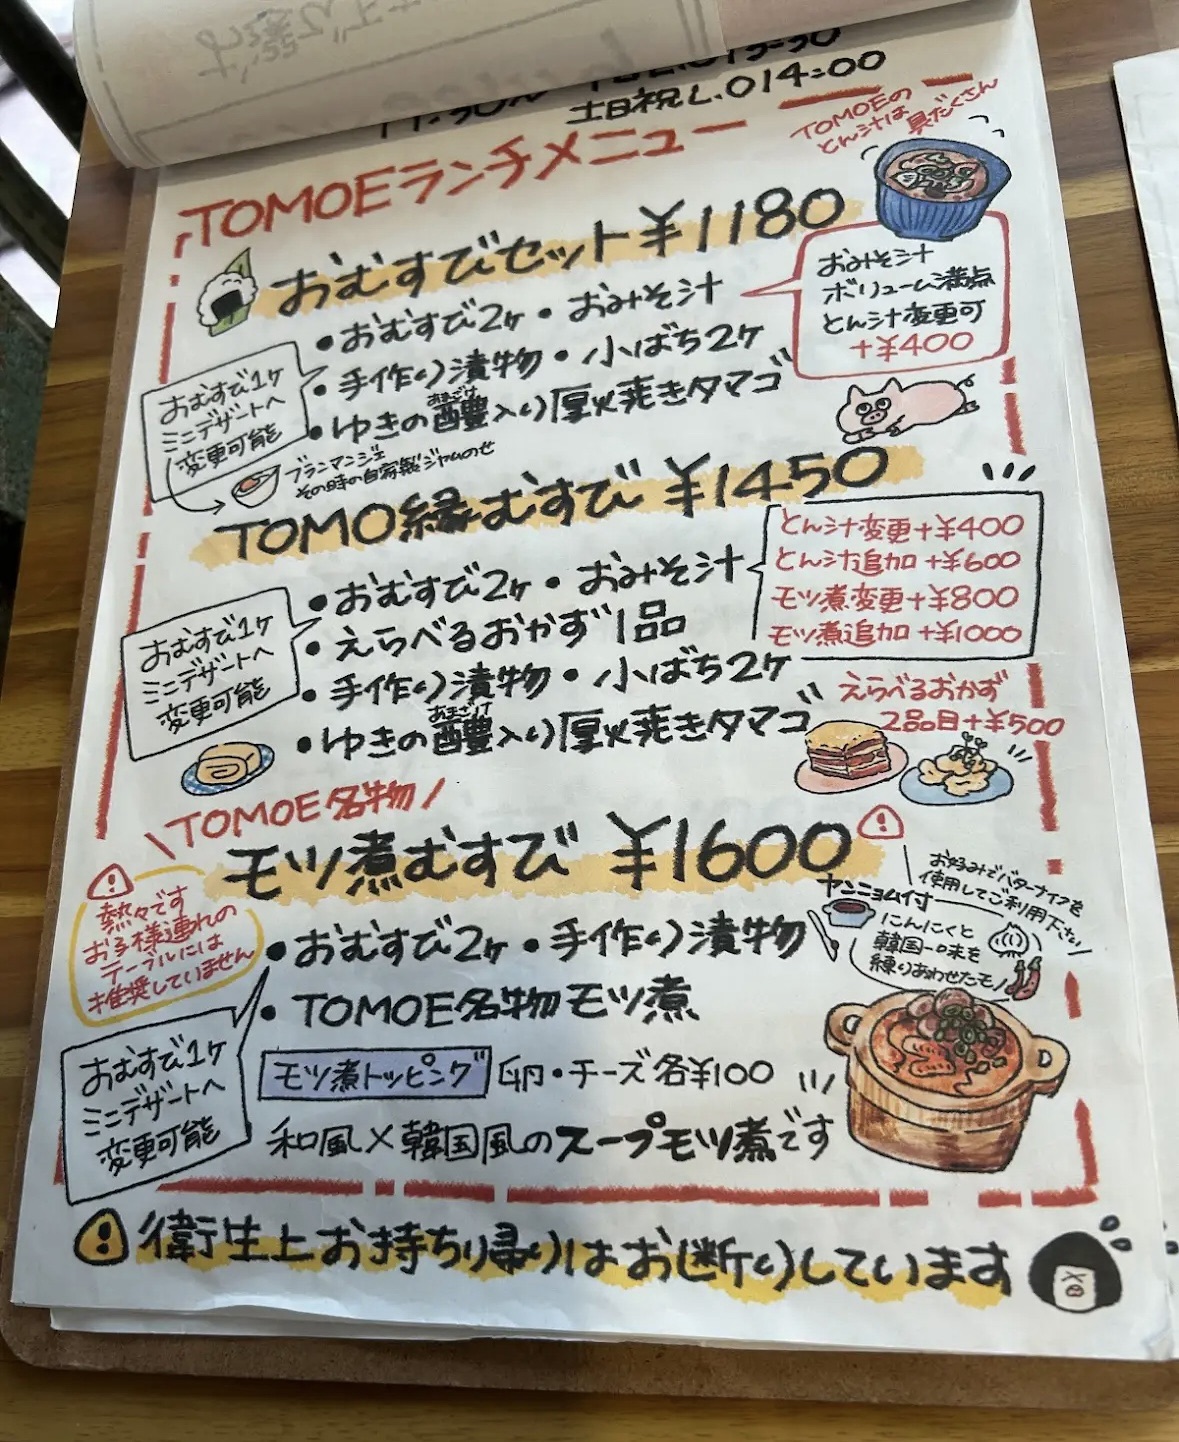 土日祝L.O14:00
TOMOEランチメニュー
TOMOEの
とん汁は具だくさん
おむすびセット ¥1180
・おむすび2ヶ・おみそ汁
・手作り漬物・小ばち2ヶ
・ゆきの醴入り厚焼きタマゴ
あまざけ
おみそ汁
ボリューム満点
とん汁変更可
+¥400
おむすび1ヶ
ミニデザートへ
変更可能
ブランマンジェ
その時の自家製ジャムのせ
TOMO縁むすび ¥1450
・おむすび2ヶ・おみそ汁
・えらべるおかず1品
・手作り漬物・小ばち2ヶ
・ゆきの醴入り厚焼きタマゴ
あまざけ
とん汁変更+¥400
とん汁追加+¥600
モツ煮変更+¥800
モツ煮追加+¥1000
おむすび1ヶ
ミニデザートへ
変更可能
えらべるおかず
2品目+¥500
\TOMOE名物/
モツ煮むすび ¥1600
熱々です
お子様連れの
テーブルには
推奨していません
・おむすび2ヶ・手作り漬物
・TOMOE名物モツ煮
お好みでバターナイフを
使用してご利用下さい
ヤンニョム付
にんにくと
韓国一味を
練りあわせたモノ
おむすび1ヶ
ミニデザートへ
変更可能
モツ煮トッピング 卵・チーズ各¥100
和風×韓国風のスープモツ煮です
衛生上お持ち帰りはお断りしています